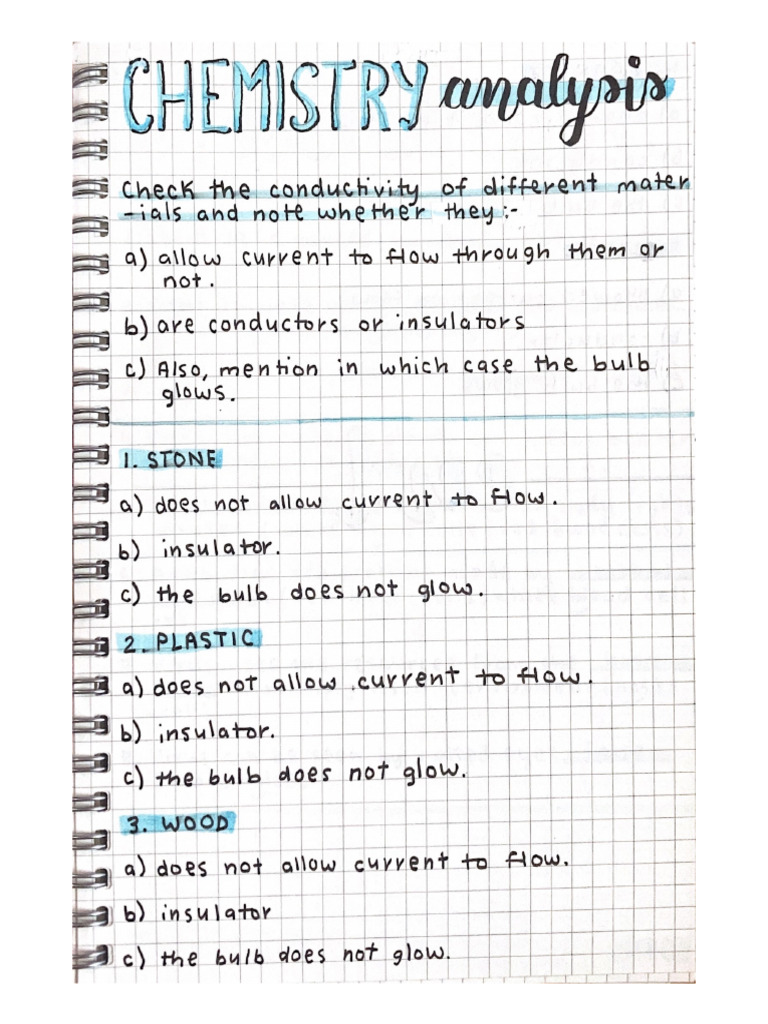 CHEMISTRY analysis
Check the conductivity of different mater
-ials and note whether they :-
a) allow current to flow through them or
not.
b) are conductors or insulators
c) Also, mention in which case the bulb
glows.
1. STONE
a) does not allow current to flow.
b) insulator.
c) the bulb does not glow.
2. PLASTIC
a) does not allow current to flow.
b) insulator.
c) the bulb does not glow.
3. WOOD
a) does not allow current to flow.
b) insulator
c) the bulb does not glow.